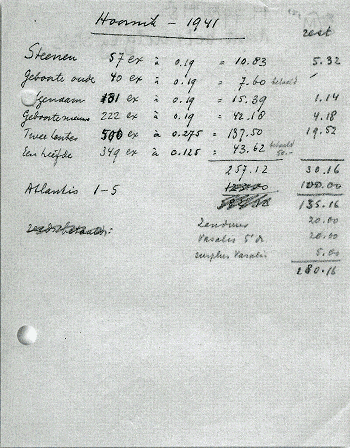 Hoornik - 1941
rest
Steenen 57 ex à 0.19 = 10.83 5.32
Geboorte oude 40 ex à 0.19 = 7.60 betaald
131 ex à 0.19 = 15.39 1.14
Geboorte nieuw 222 ex à 0.19 = 42.18 4.18
Twee lentes 500 ex à 0.275 = 137.50 19.52
Een liefde 349 ex à 0.125 = 43.62 betaald
257.12 30.16
Atlantis 1-5 100.00
135.16
20.00
Vasalis 5e dr 20.00
surplus Vasalis 5.00
280.16